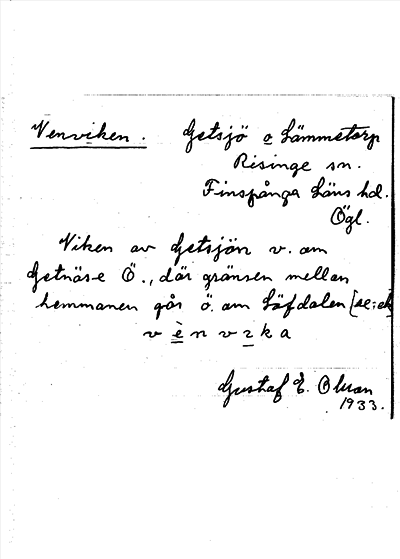 Venviken. Getsjö o Lämmetorp
Risinge sn.
Finspånga Läns hd.
Ögl.
Viken av Getsjön v. om
Getnäs-e Ö., där gränsen mellan
hemmanen går ö. om Löfdalen [se; ek
v è n v ɪ k a
Gustaf E. Olson
1933.